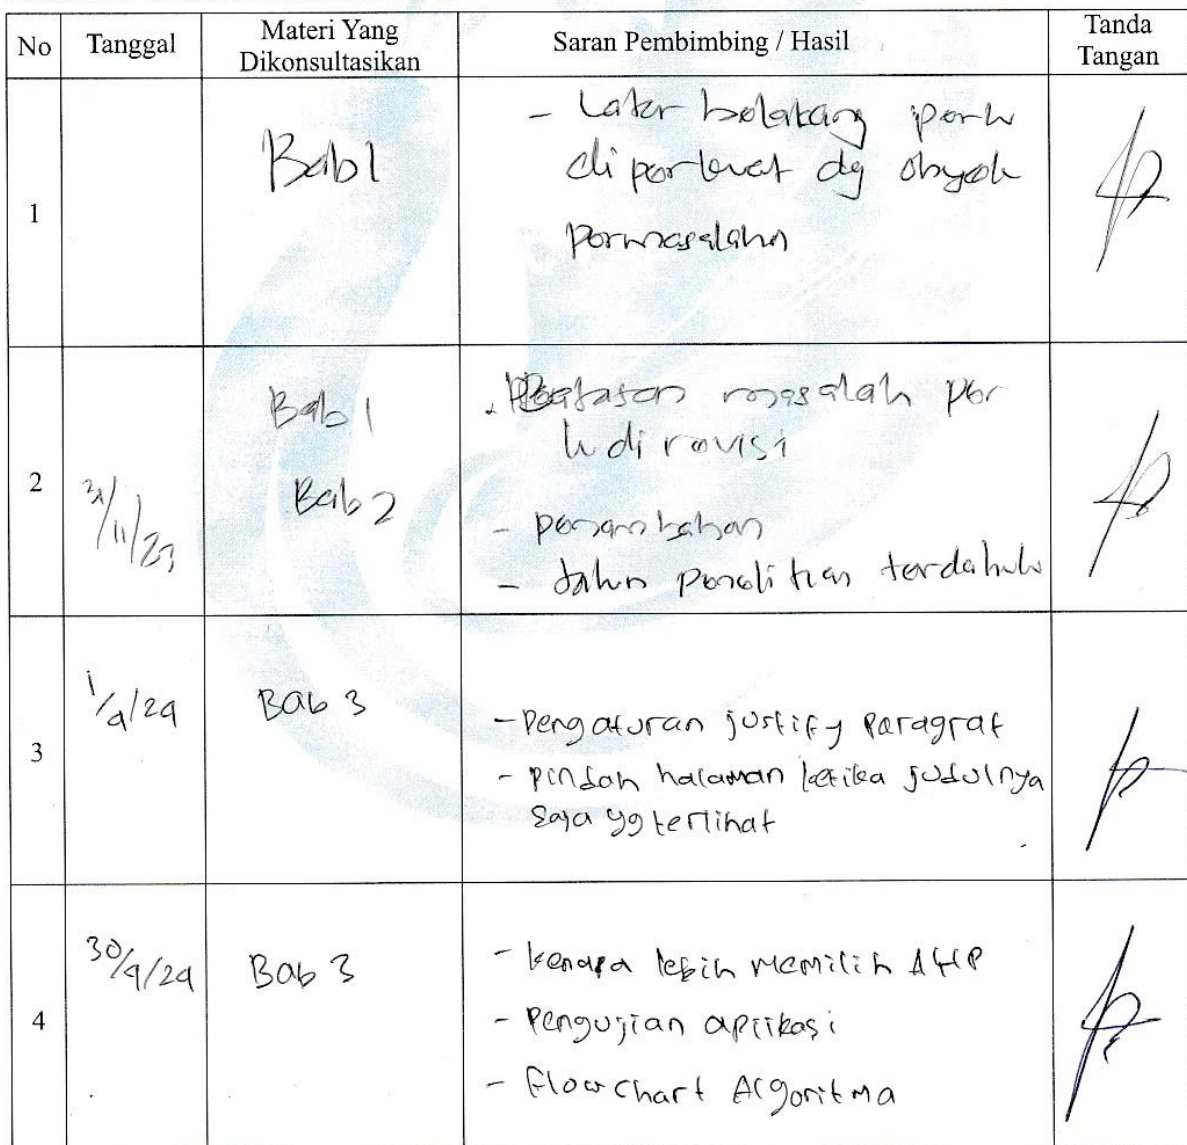 No Tanggal Materi Yang Dikonsultasikan Saran Pembimbing / Hasil Tanda Tangan
1 Bab 1 - Latar belakang perlu
diperkuat dg obyek
permasalahn
2 31/11/23 Bab 1 . Batasan masalah per
lu di revisi
Bab 2 - penambahan
- tahun penelitian terdahulu
3 1/4/24 Bab 3 - Pengaturan justify Paragraf
- pindah halaman ketika judulnya
saja yg terlihat
4 30/4/24 Bab 3 - kenapa lebih memilih AHP
- Pengujian aplikasi
- Flowchart Algoritma